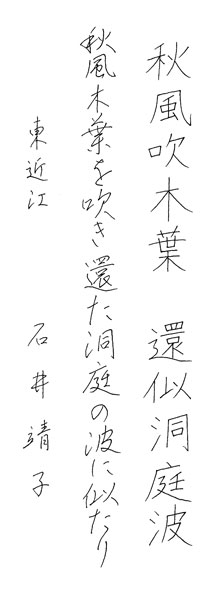 秋風吹木葉　還似洞庭波
秋風木葉を吹き還た洞庭の波に似たり
東近江　石井靖子